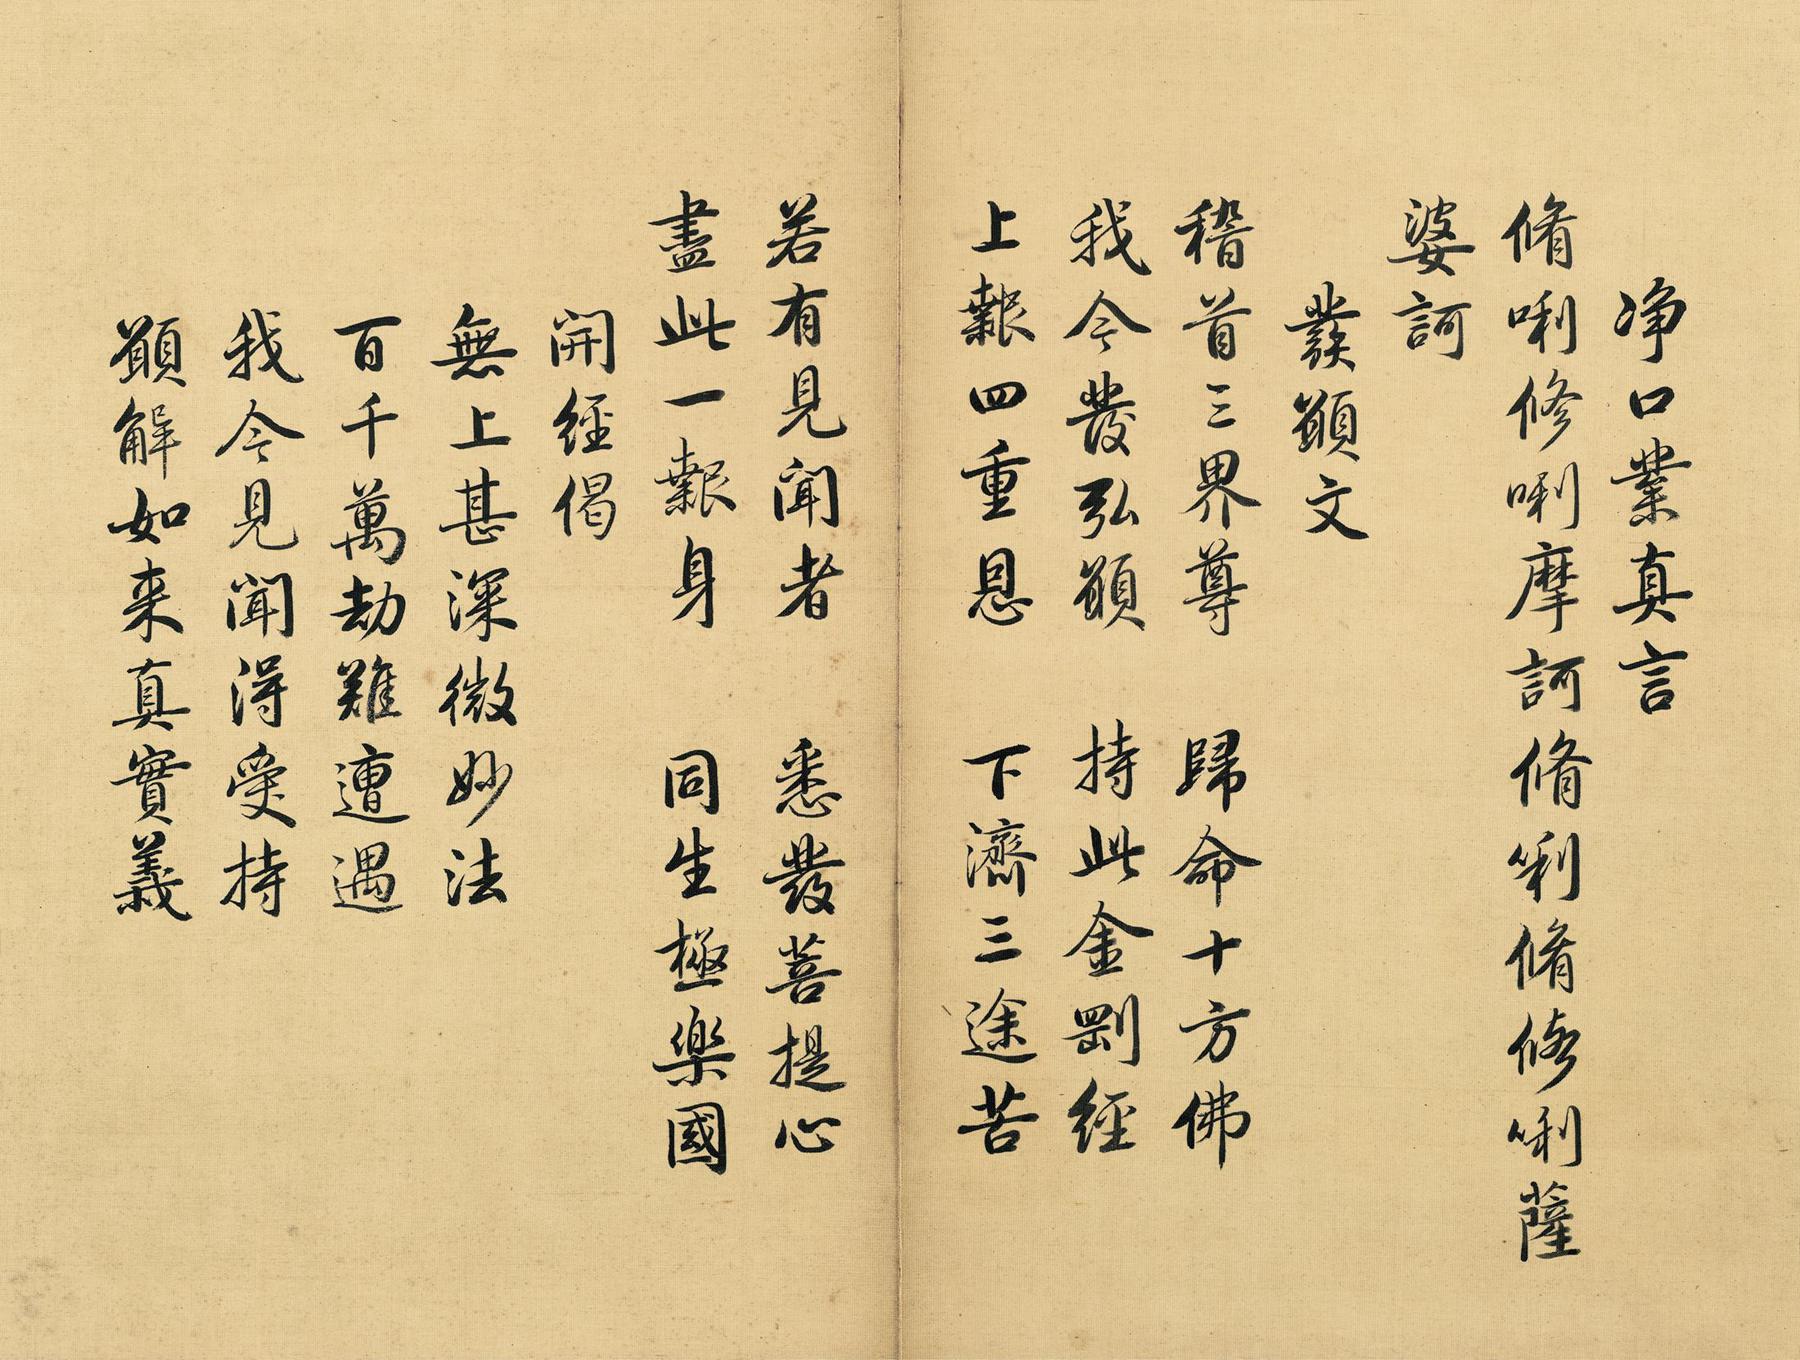 净口業真言
脩唎修唎摩訶脩利脩修唎薩
婆訶
發願文
稽首三界尊 歸命十方佛
我今發弘願 持此金剛經
上報四重恩 下濟三途苦
若有見聞者 悉發菩提心
盡此一報身 同生極樂國
開經偈
無上甚深微妙法
百千萬劫難遭遇
我今見聞得受持
願解如来真實義